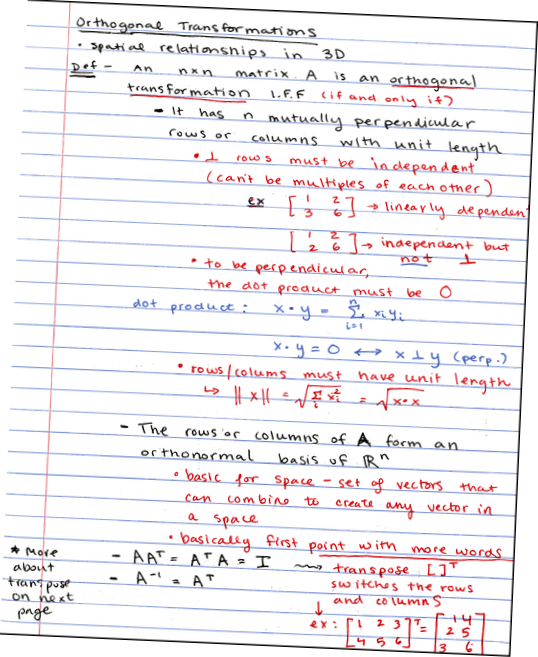 Orthogonal Transformations
• spatial relationships in 3D
Def - An nxn matrix A is an orthogonal
transformation I.F.F (if and only if)
- It has n mutually perpendicular
rows or columns with unit length
• ⊥ rows must be independent
(can't be multiples of each other)
ex [1 2 / 3 6] → linearly dependent
[1 2 / 2 6] → independent but
not ⊥
• to be perpendicular,
the dot product must be 0
dot product: x • y = Σ_{i=1}^{n} xᵢyᵢ
x • y = 0 ↔ x ⊥ y (perp.)
• rows/colums must have unit length
↳ ||x|| = √(Σᵢ xᵢ²) = √(x•x)
- The rows or columns of A form an
orthonormal basis of ℝⁿ
• basic for space - set of vectors that
can combine to create any vector in
a space
• basically first point with more words
- AAᵀ = AᵀA = I ⟿ transpose [ ]ᵀ
switches the rows
and columns
- A⁻¹ = Aᵀ
↓
ex: [1 2 3 / 4 5 6]ᵀ = [1 4 / 2 5 / 3 6]
* More
about
transpose
on next
page